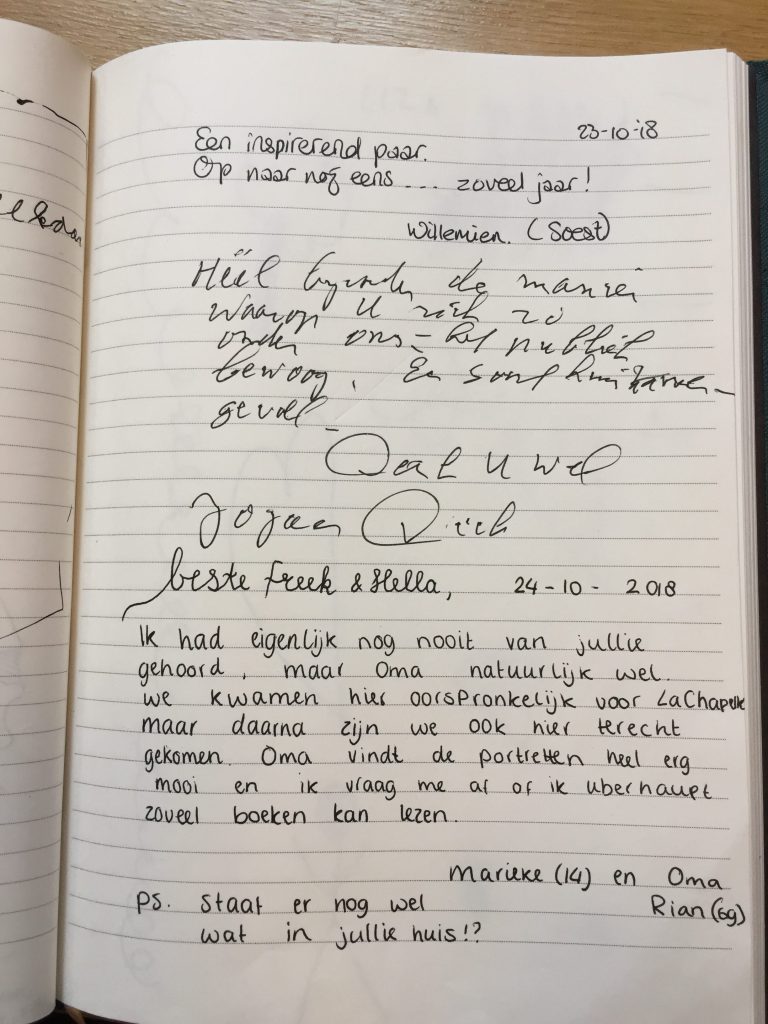 23-10-18
Een inspirerend paar.
Op naar nog eens ... zoveel jaar!
Willemien. (Soest)
Heel de manier
waarop U zich zo
onder ons - het publiek
bewoog. Een soort
gevoel
Gaat U wel
beste Freek & Hella, 24-10-2018
Ik had eigenlijk nog nooit van jullie
gehoord, maar Oma natuurlijk wel.
we kwamen hier oorspronkelijk voor LaChapelle
maar daarna zijn we ook hier terecht
gekomen. Oma vindt de portretten heel erg
mooi en ik vraag me af of ik uberhaupt
zoveel boeken kan lezen.
Marieke (14) en Oma
Rian (69)
PS. Staat er nog wel
wat in jullie huis!?